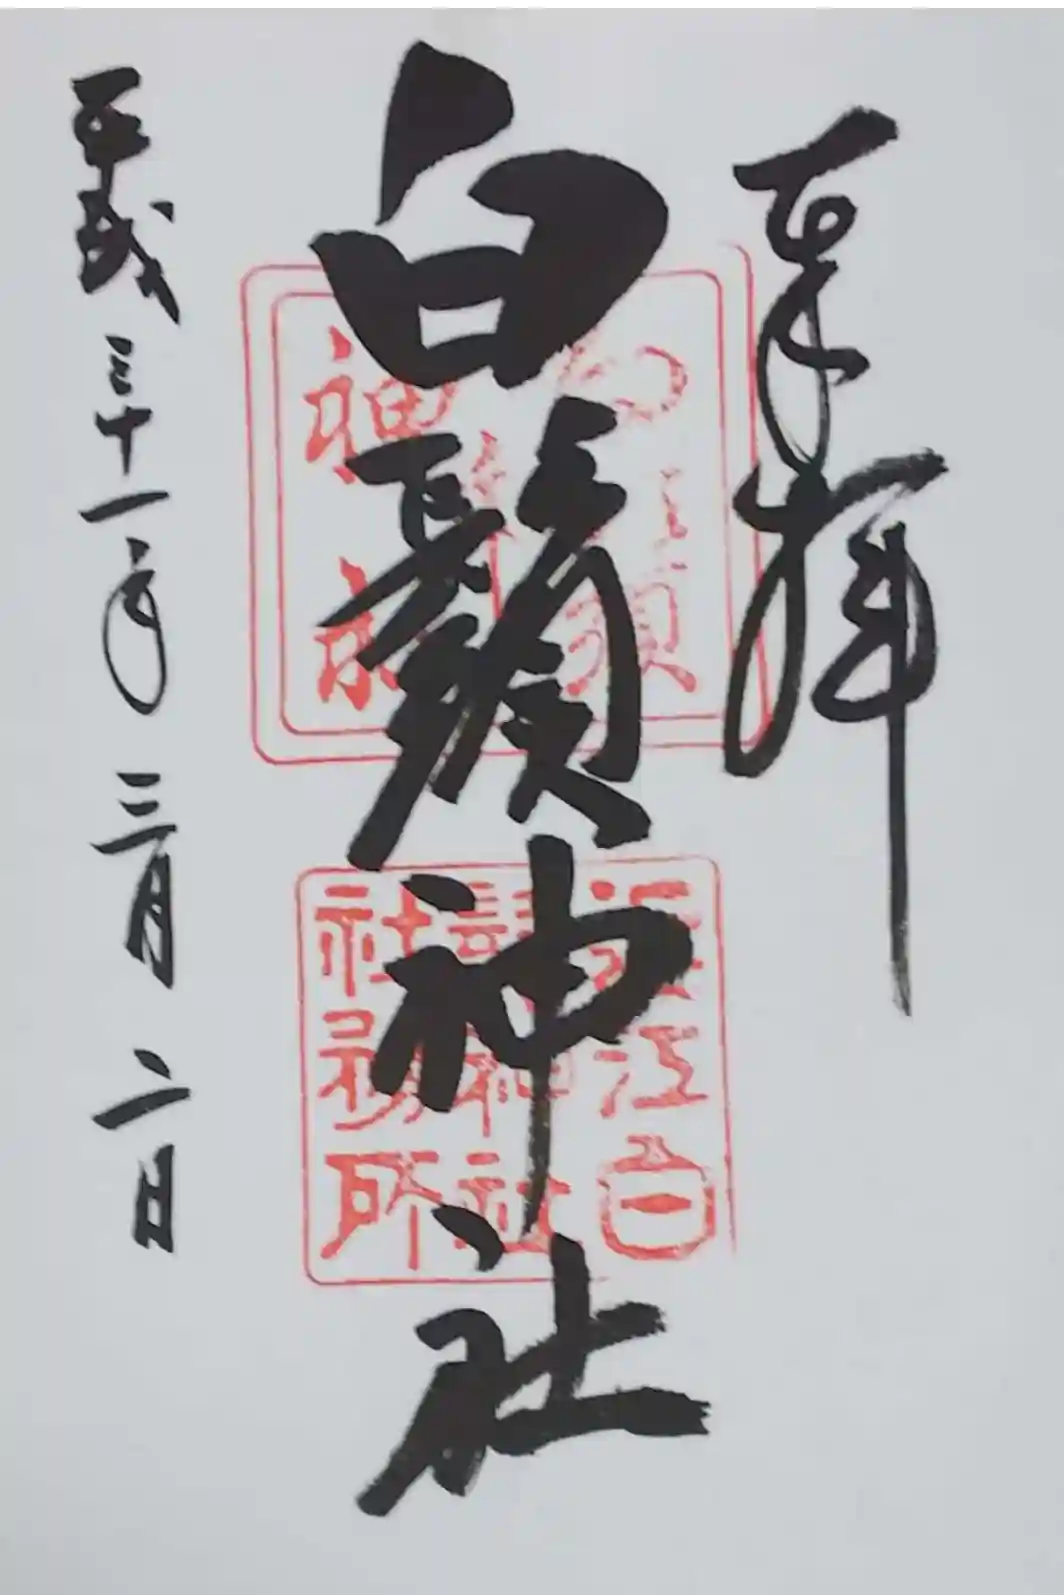 奉拝
白鬚神社
平成三十一年三月二日
近江白
鬚神社
社務所